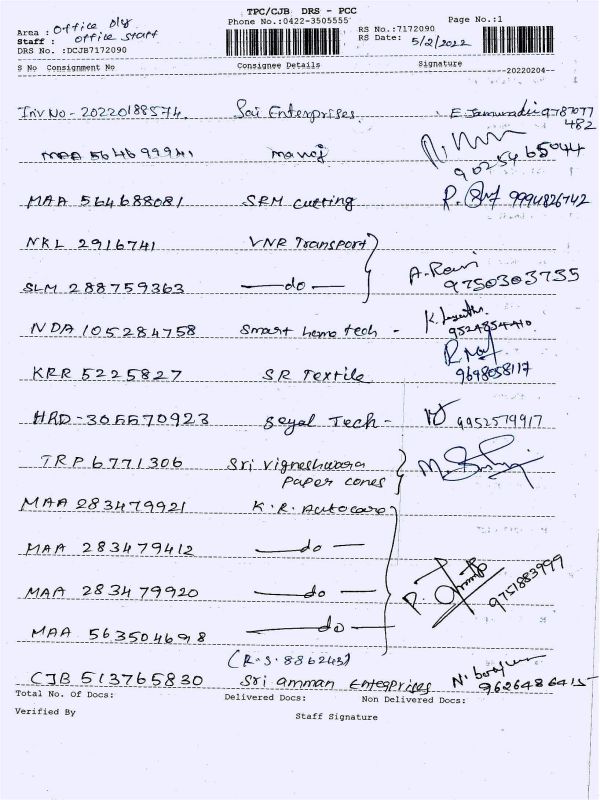 TPC/CJB DRS - PCC
Area : Office Dly Phone No.:0422-3505555 Page No.:1
Staff : Office staff RS No.:7172090
DRS No. :DCJB7172090 RS Date: 5/2/2022
S No Consignment No Consignee Details Signature
20220204
Inv No - 20220188574. Sai Enterprises. 9787077
482
MAA 564699941 manoj 9025465044
MAA 564688081 SRM cutting 9994826742
NKL 2916741 VNR Transport
SLM 288759363 do A. Ravi 9750303755
NDA 105284758 Smart home tech - 9524854410
KRR 5225827 SR Textile 9698058117
HRD-305570923 Seyal Tech - 9952579917
TRP 6771306 Sri Vigneshwara
paper cones
MAA 283479921 K.R. Autocare
MAA 283479412 do
MAA 283479920 do 9757883999
MAA 563504698 do
(R.S. 886243)
CJB 513765830 Sri amman Enterprises 9626486415
Total No. of Docs: Delivered Docs: Non Delivered Docs:
Verified By Staff Signature